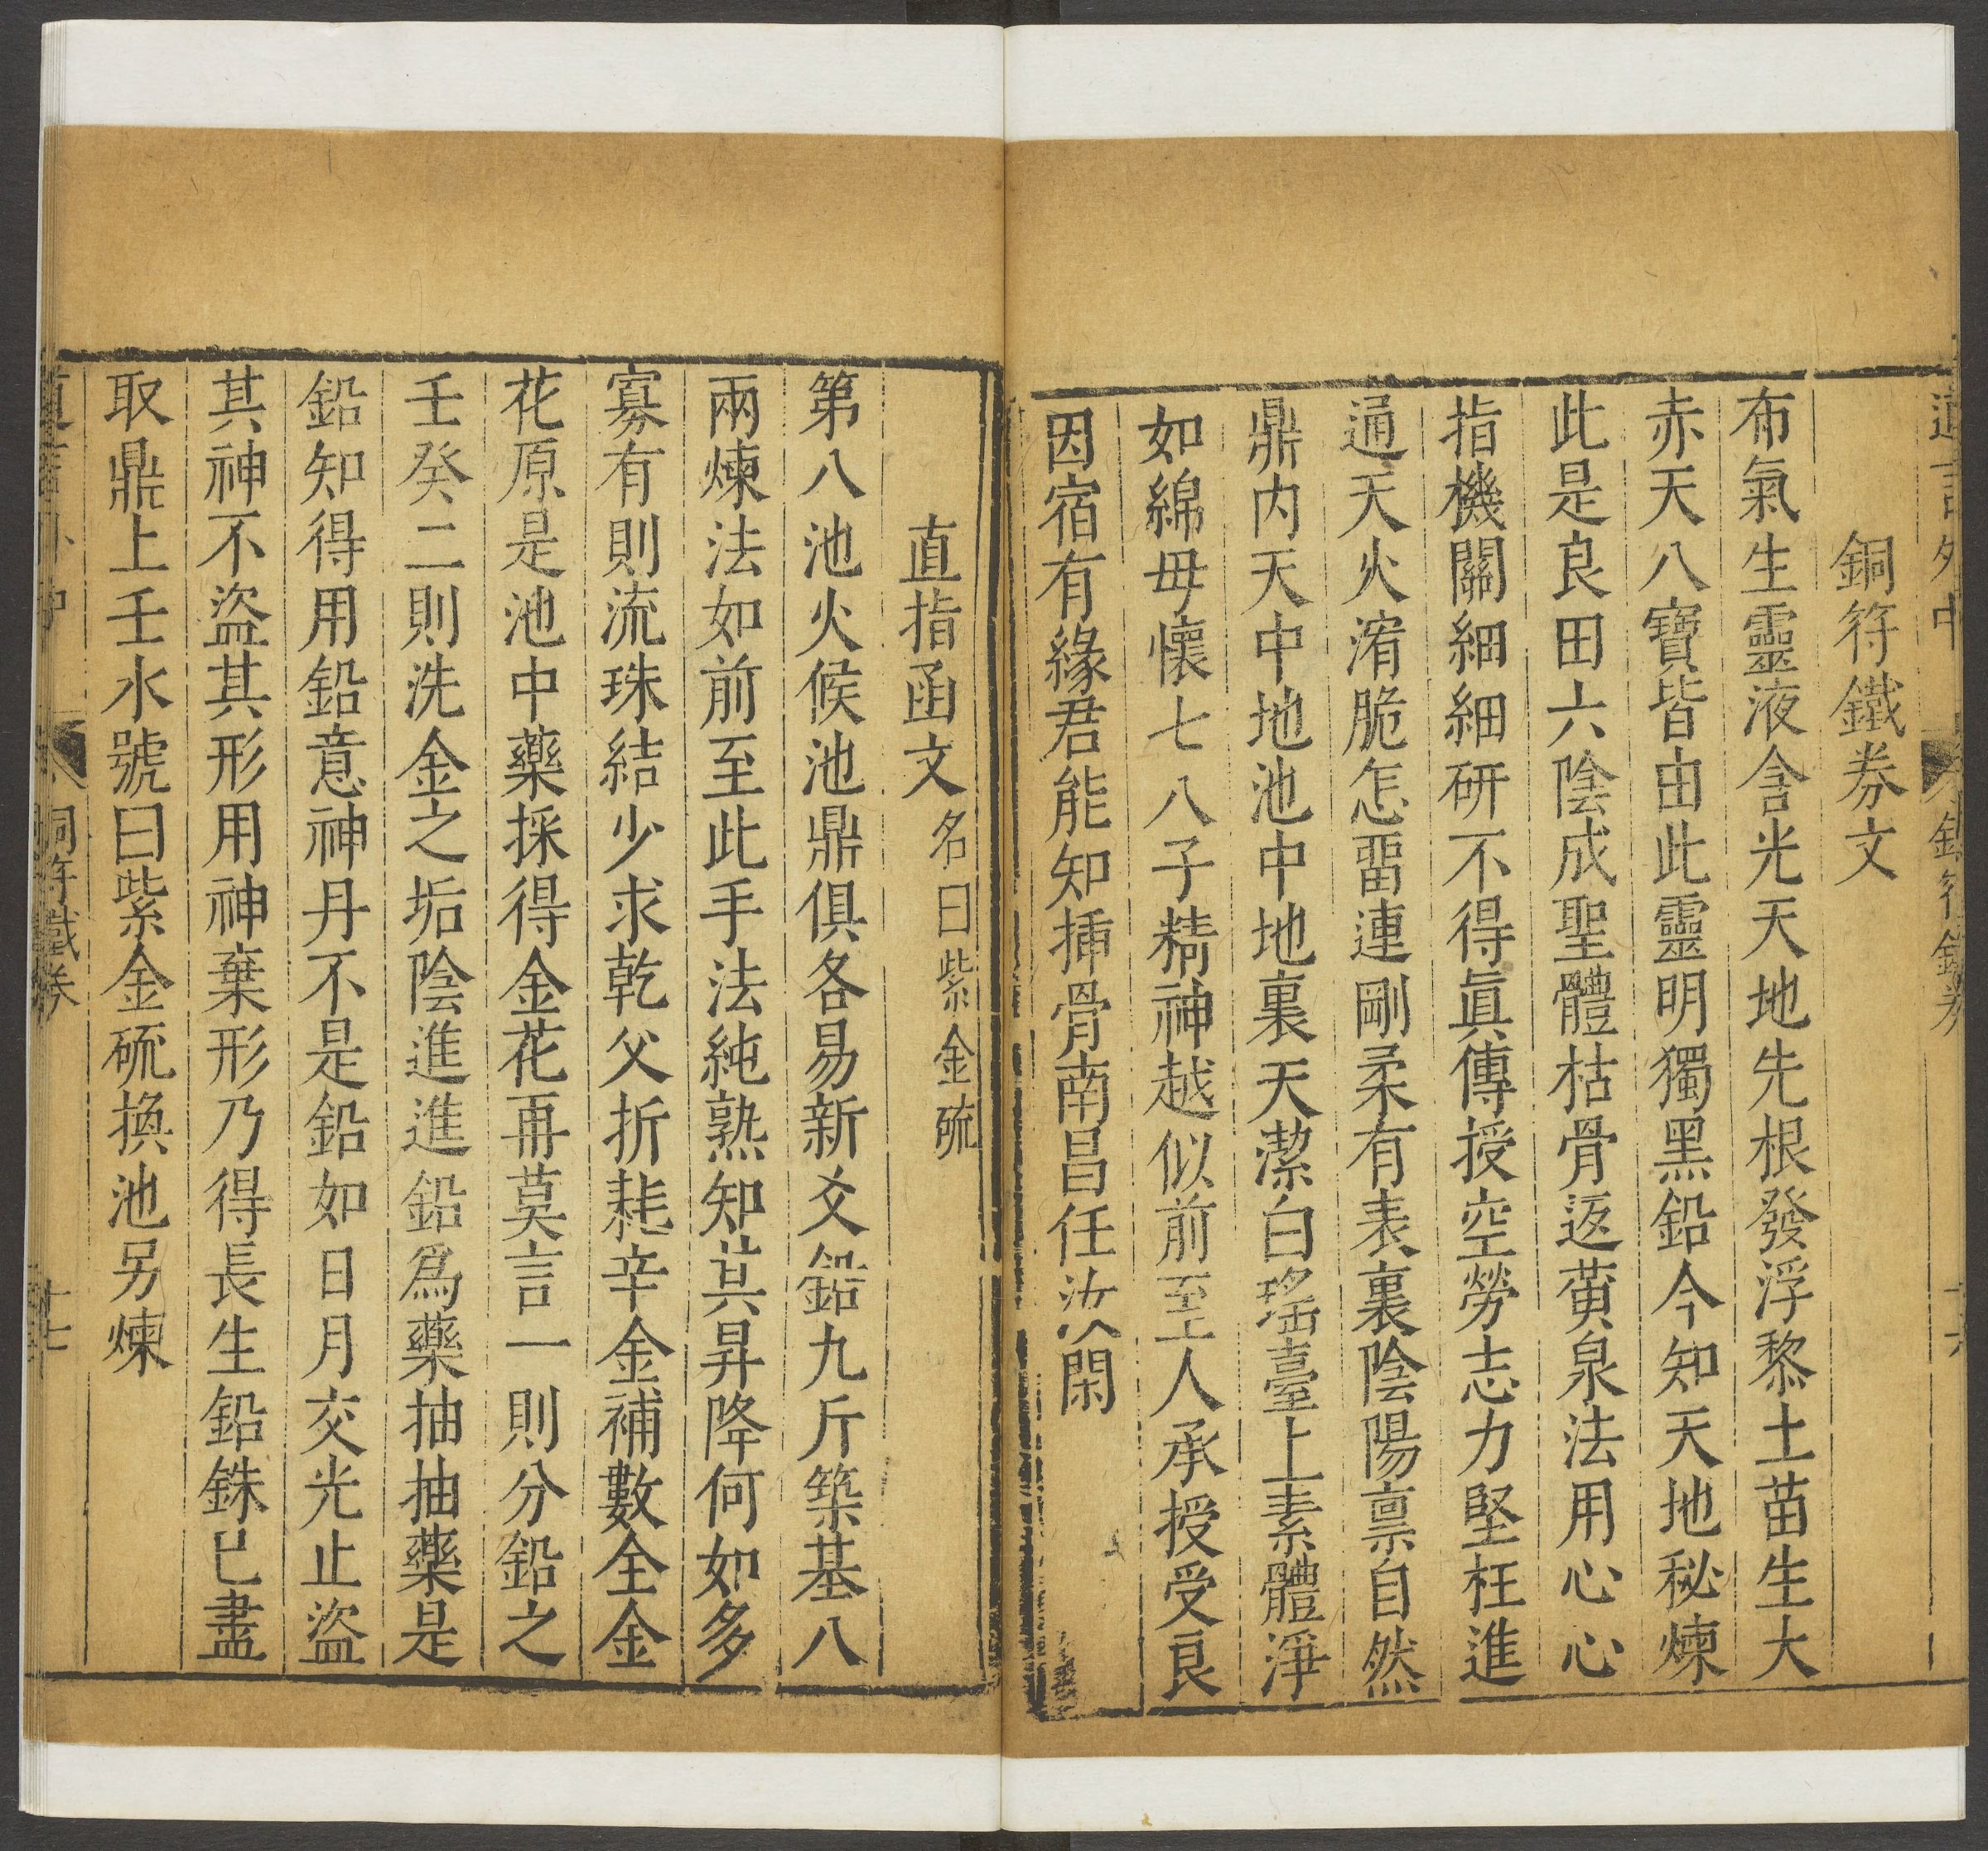 銅符鐵券文
布氣生靈液含光天地先根發浮黎土苗生大
赤天八寶皆由此靈明獨黑鉛今知天地秘煉
此是良田六陰成聖體枯骨返黃泉法用心心
指機關細細研不得眞傳授空勞志力堅枉進
通天火淯脆怎畱連剛柔有表裏陰陽禀自然
鼎内天中地池中地裏天潔白瑤臺上素體淨
如綿毋懷七八子精神越似前至人承授受良
因宿有緣君能知揷骨南昌任汝閑
直指函文名曰紫金硫
第八池火候池鼎俱各易新爻鉛九斤築基八
兩煉法如前至此手法純熟知其昇降何如多
寡有則流珠結少求乾父折耗辛金補數全金
花原是池中藥採得金花再莫言一則分鉛之
壬癸二則洗金之垢陰進進鉛爲藥抽抽藥是
鉛知得用鉛意神丹不是鉛如日月交光止盜
其神不盜其形用神棄形乃得長生鉛銖已盡
取鼎上壬水號曰紫金硫換池另煉
銅符鐵券
十七